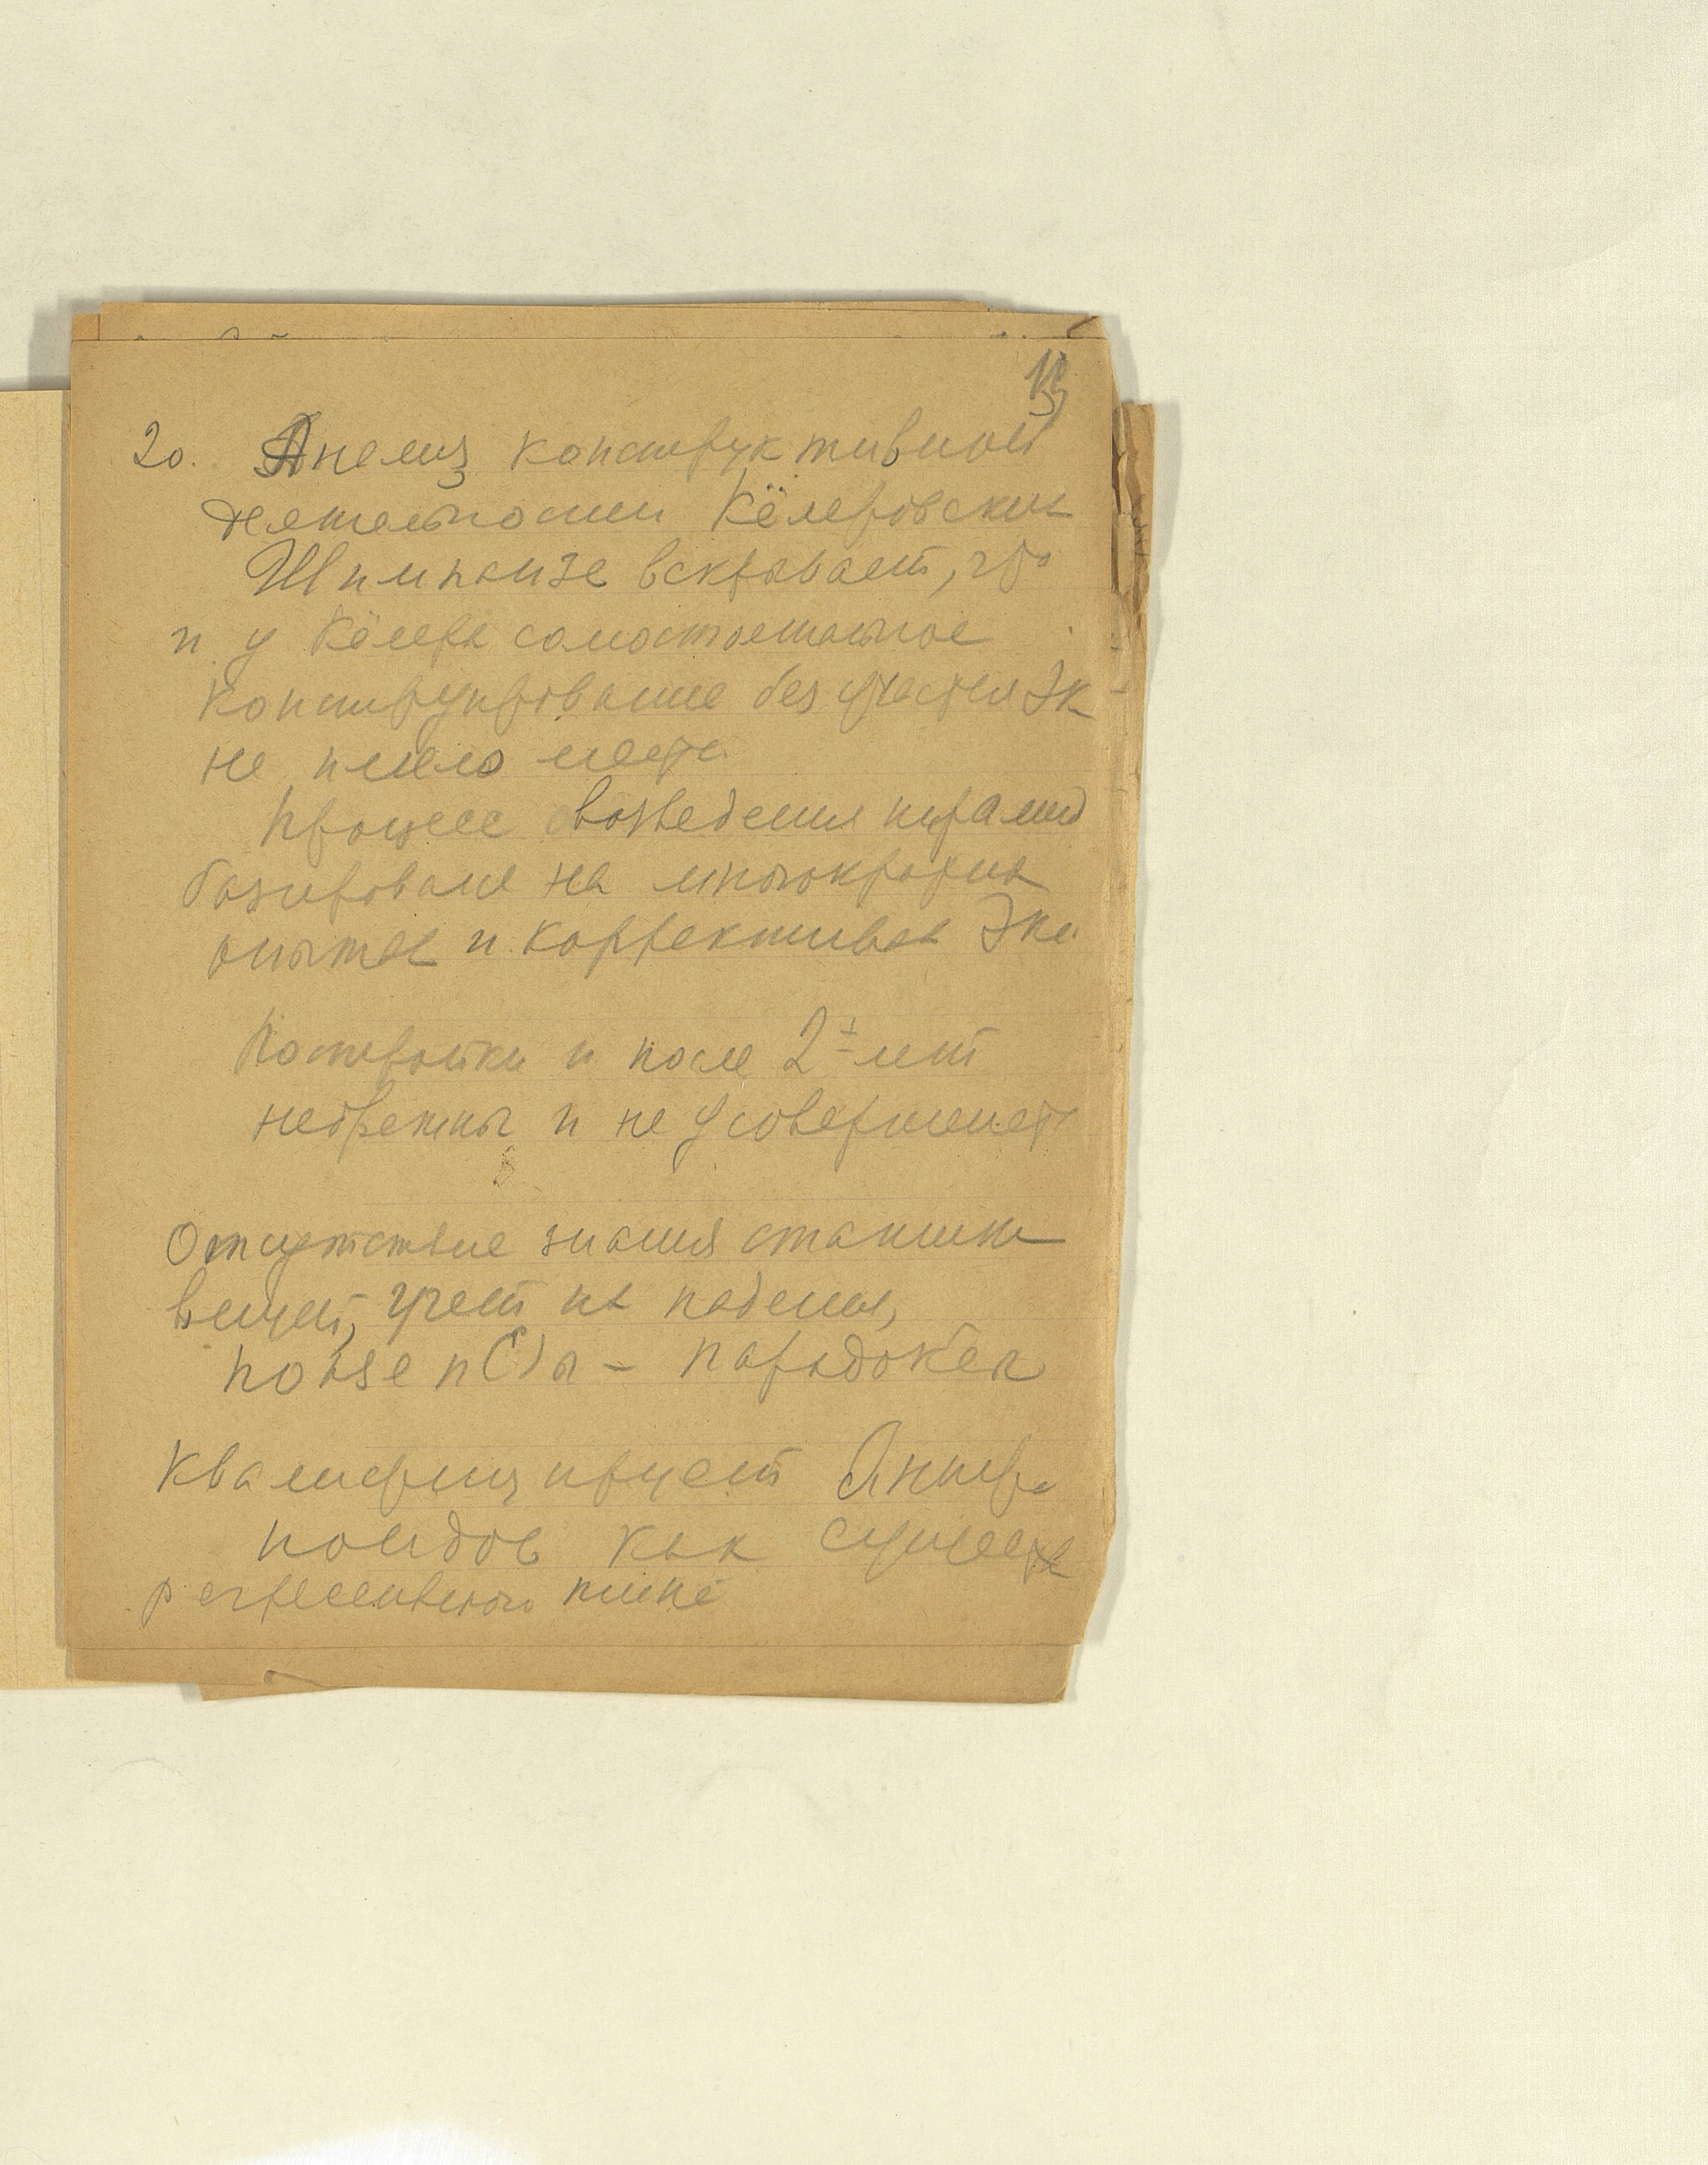 13
20. Анализ конструктивной
деятельности Кёлеровских
Шимпанзе вскрывает, что
и у Кёлера самостоятельное
конструирование без участия Эк
не имело места
Процесс возведения пирамид
базировался на многократных
опытах и коррективах Экс.
Постройки и после 2х лет
небрежны и не усовершенст
Отсутствие знания статики
вещей, учет их падения,
парадоксы
Квалифицирует Антро
поидов как существ
регрессивного типа